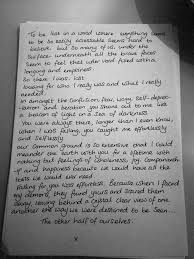 To be lost in a world where everything seems
to be so easily accessible seems hard to
believe. but so many of us under the
surface underneath all the brave faces
seem to feel that void filled with a
longing and emptiness.
So there I was, lost
looking for who I really was and what I really
needed.
In amongst the confusion, fear, self-deprecation
and because you shone out to me like
a beacon of light in a sea of darkness.
You were always there, longer than I even knew,
when I was falling, you caught me effortlessly
and selflessly
Our common ground is so extensive that I could
meander the earth with you for a lifetime with
nothing but feelings of wholeness, companionship
and happiness because we would have all the
tools we ever need
Falling for you was effortless. Because when I faced
my demons, they found yours and scared them
away leaving behind a crystal clear view of one
another the way we were destined to be seen...
The other half of ourselves.
x